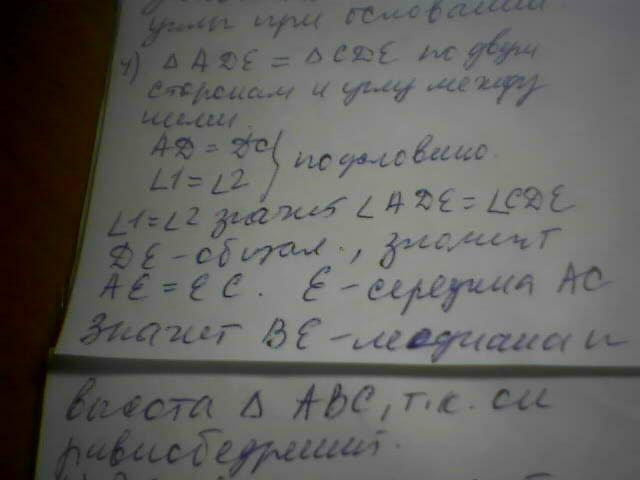 углы при основании
4) △ADE = △CDE по двум
сторонам и углу между
ними.
AD = DC } по условию.
∠1 = ∠2
∠1 = ∠2 значит ∠ADE = ∠CDE
DE - общая, значит
AE = EC. E - середина AC
Значит BE - медиана и
высота △ ABC, т.к. он
равнобедренный.